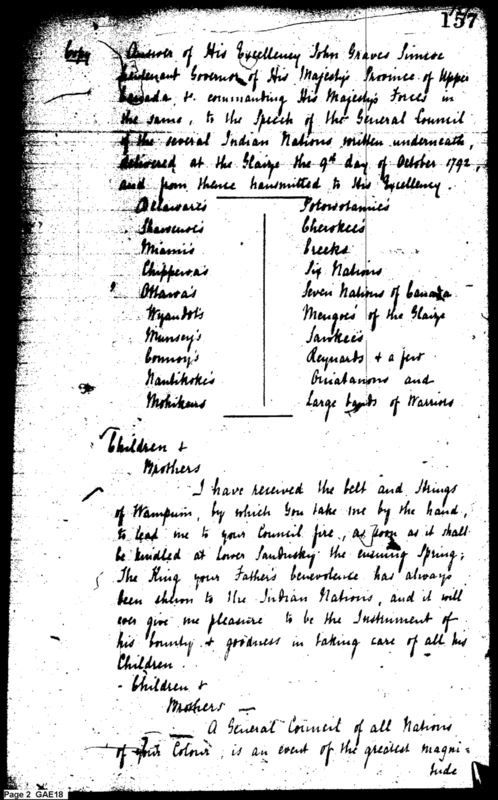 157
Copy Answer of His Excellency John Graves Simcoe
Lieutenant Governor of His Majesty's Province of Upper
Canada &. commanding His Majesty's Forces in
the same, to the Speech of the General Council
of the several Indian Nations written underneath,
delivered at the Glaize the 9th day of October 1792,
and from thence transmitted to His Excellency.
Delaware's
Shawenoe's
Miami's
Chippewa's
Ottawa's
Wyandot's
Munsey's
Connoy's
Nantikoke's
Mohikans
Potowotamie's
Cherokee's
Creeks
Six Nations
Seven Nations of Canada
Mengoes of the Glaize
Sawkee's
Reynards & a few
Ouiatanons and
Large bands of Warriors
Children &
Brothers
I have received the belt and Strings
of Wampum, by which You take me by the hand,
to lead me to your Council fire, as soon as it shall
be kindled at Lower Sandusky the ensuing Spring;
The King your Father's benevolence has always
been shewn to the Indian Nations, and it will
ever give me pleasure to be the Instrument of
his bounty & goodness in taking care of all his
Children.
- Children &
Brothers —
A General Council of all Nations
of your Colour, is an event of the greatest magni=
tude
Page 2 GAE18